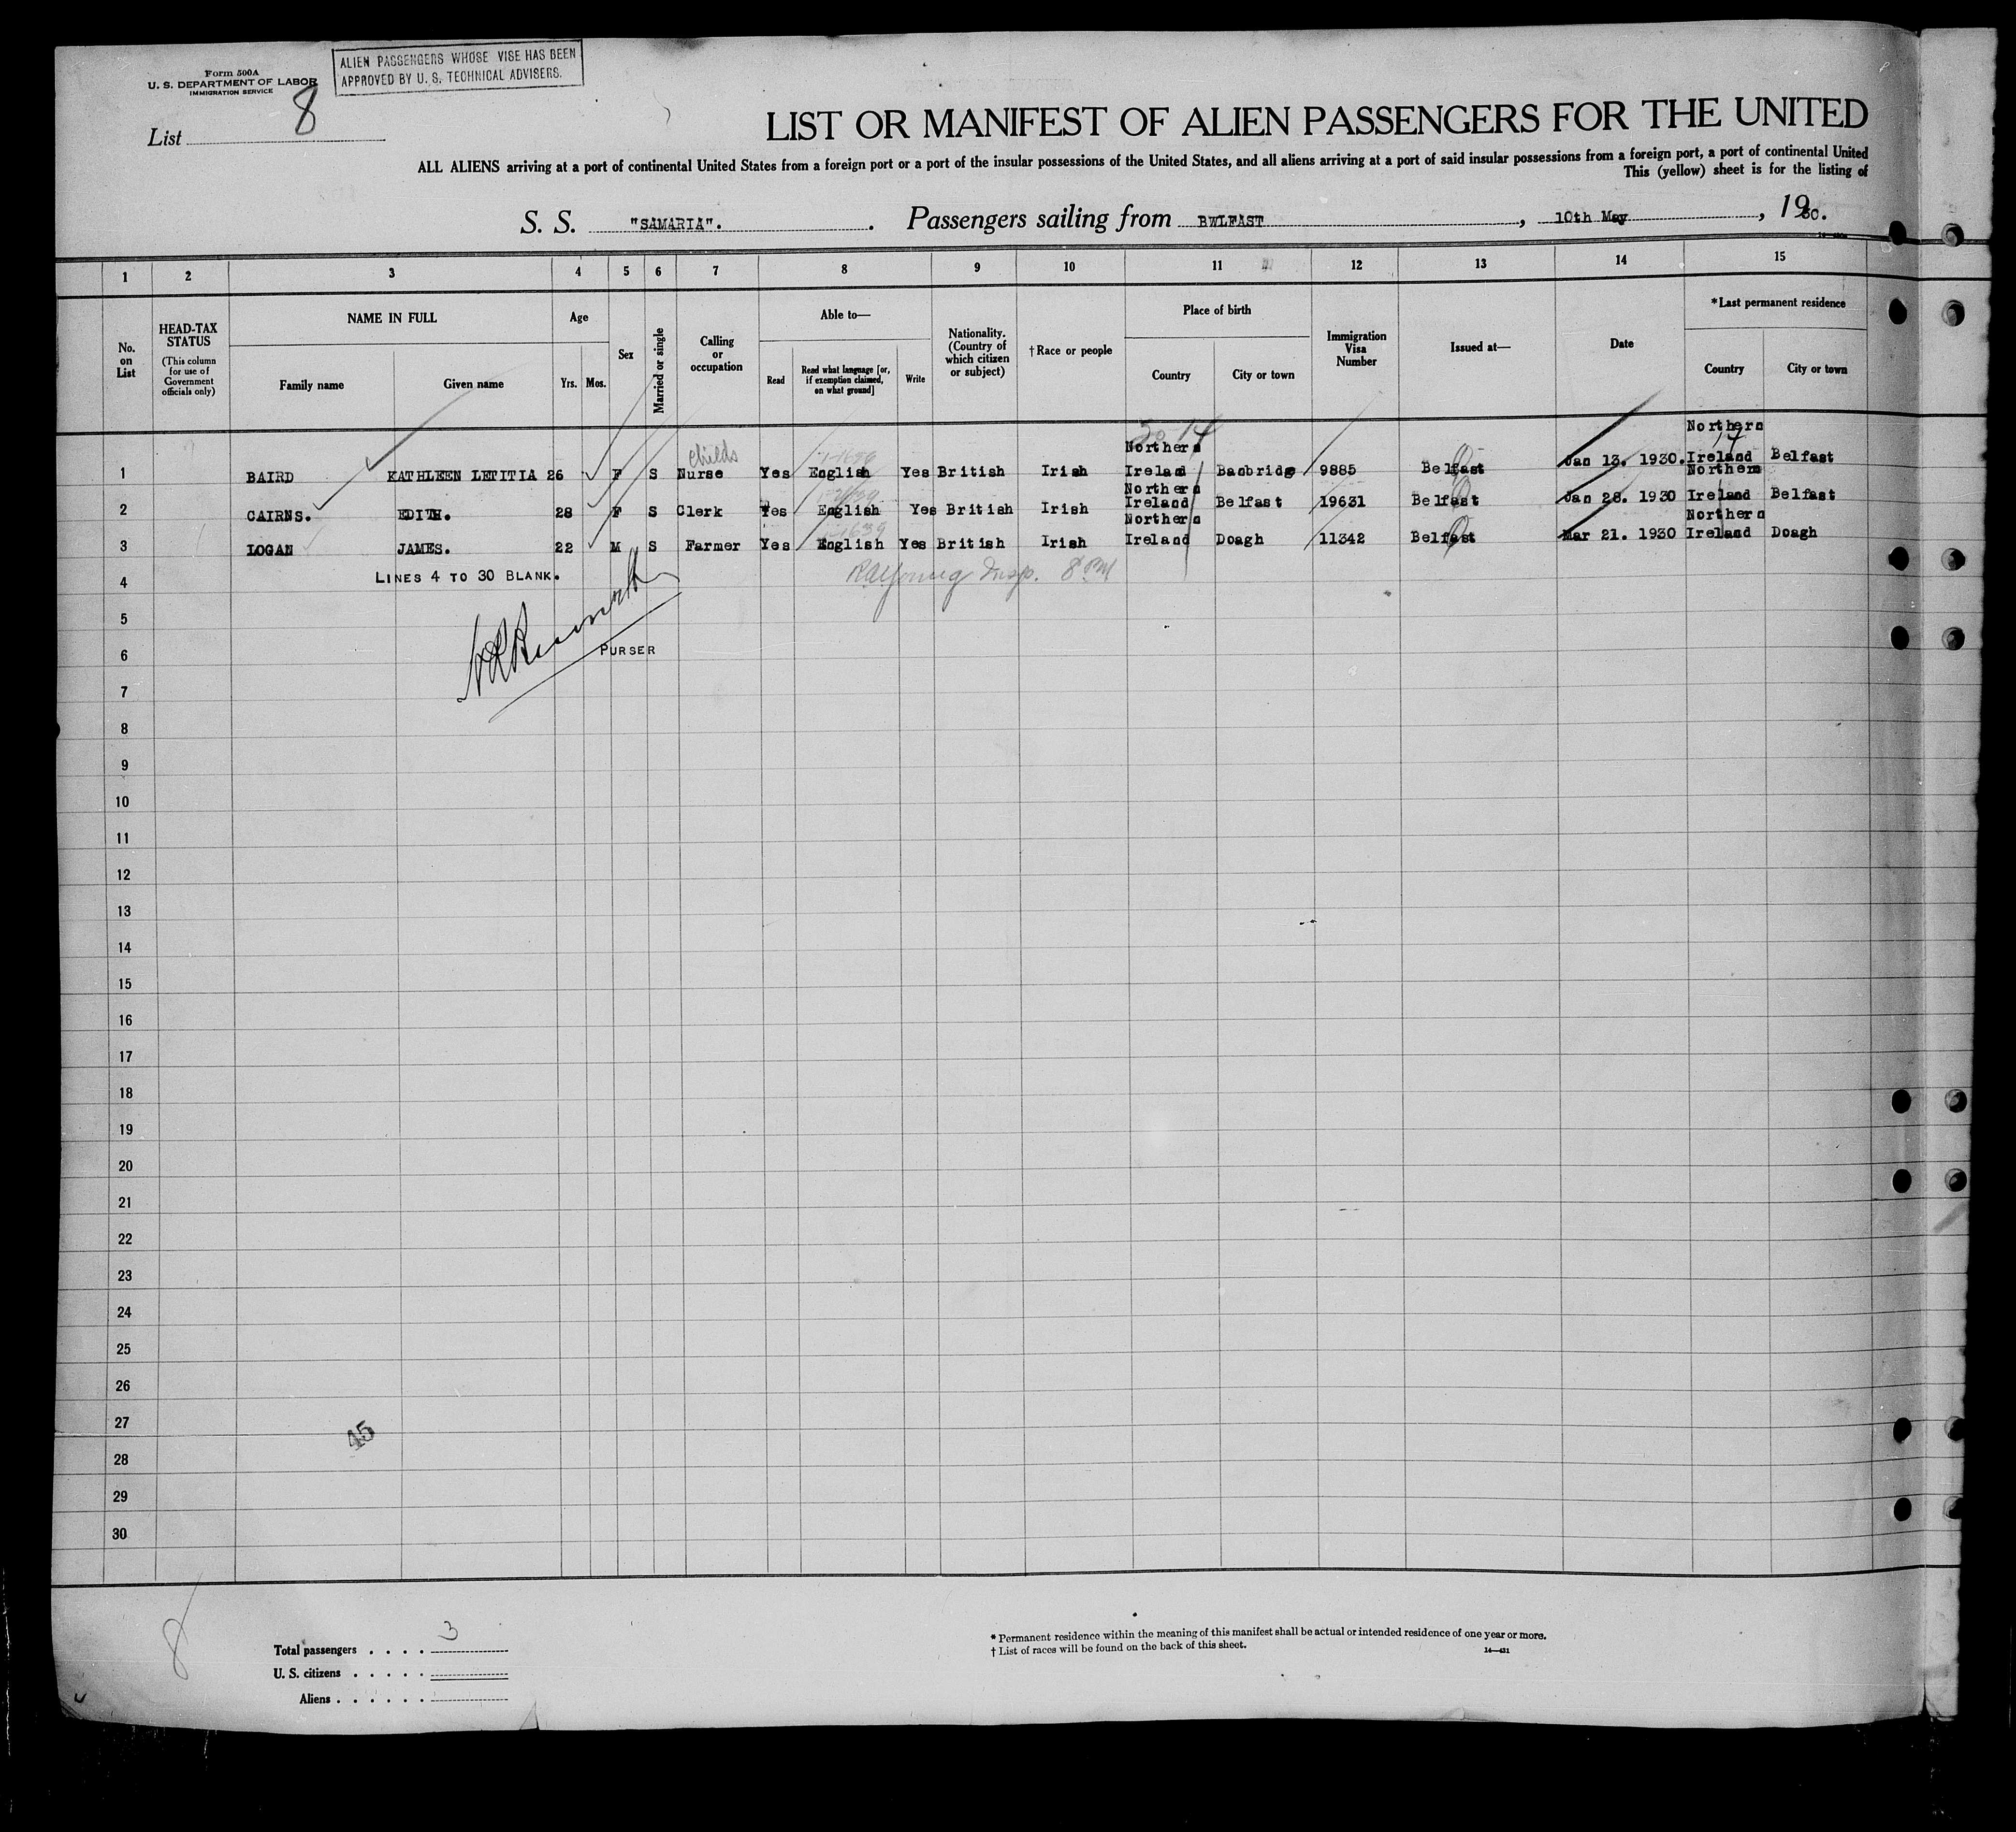 Form 500A
U. S. DEPARTMENT OF LABOR
IMMIGRATION SERVICE
ALIEN PASSENGERS WHOSE VISE HAS BEEN
APPROVED BY U. S. TECHNICAL ADVISERS.
List 8
LIST OR MANIFEST OF ALIEN PASSENGERS FOR THE UNITED
ALL ALIENS arriving at a port of continental United States from a foreign port or a port of the insular possessions of the United States, and all aliens arriving at a port of said insular possessions from a foreign port, a port of continental United
This (yellow) sheet is for the listing of
S. S. "SAMARIA". Passengers sailing from BWLFAST, 10th May, 1930.
1 2 3 4 5 6 7 8 9 10 11 12 13 14 15
No. on List
HEAD-TAX STATUS
(This column for use of Government officials only)
NAME IN FULL
Family name Given name
Age
Yrs. Mos.
Sex
Married or single
Calling or occupation
Able to—
Read Read what language [or, if exemption claimed, on what ground] Write
Nationality. (Country of which citizen or subject)
†Race or people
Place of birth
Country City or town
Immigration Visa Number
Issued at—
Date
*Last permanent residence
Country City or town
30 14
14
childs
1 BAIRD KATHLEEN LETITIA 26 F S Nurse Yes English Yes British Irish Northern Ireland Banbridge 9885 Belfast Jan 13. 1930. Northern Ireland Belfast
2 CAIRNS. EDITH. 28 F S Clerk Yes English Yes British Irish Northern Ireland Belfast 19631 Belfast Jan 28. 1930 Northern Ireland Belfast
3 LOGAN JAMES. 22 M S Farmer Yes English Yes British Irish Northern Ireland Doagh 11342 Belfast Mar 21. 1930 Northern Ireland Doagh
4 LINES 4 TO 30 BLANK. Young Insp. 8 PM
5
6 PURSER
7
8
9
10
11
12
13
14
15
16
17
18
19
20
21
22
23
24
25
26
27
45
28
29
30
8
Total passengers . . . . 3
U. S. citizens . . . . .
Aliens . . . . . .
* Permanent residence within the meaning of this manifest shall be actual or intended residence of one year or more.
† List of races will be found on the back of this sheet.
14—431